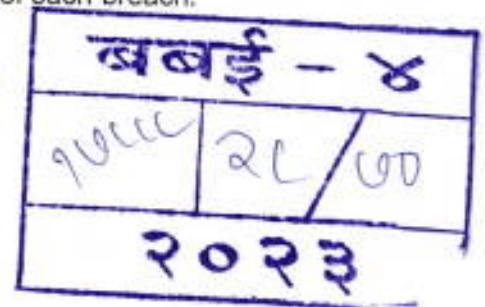 of such breach.
बबई - ४
१७८८८ २८/७०
२०२३